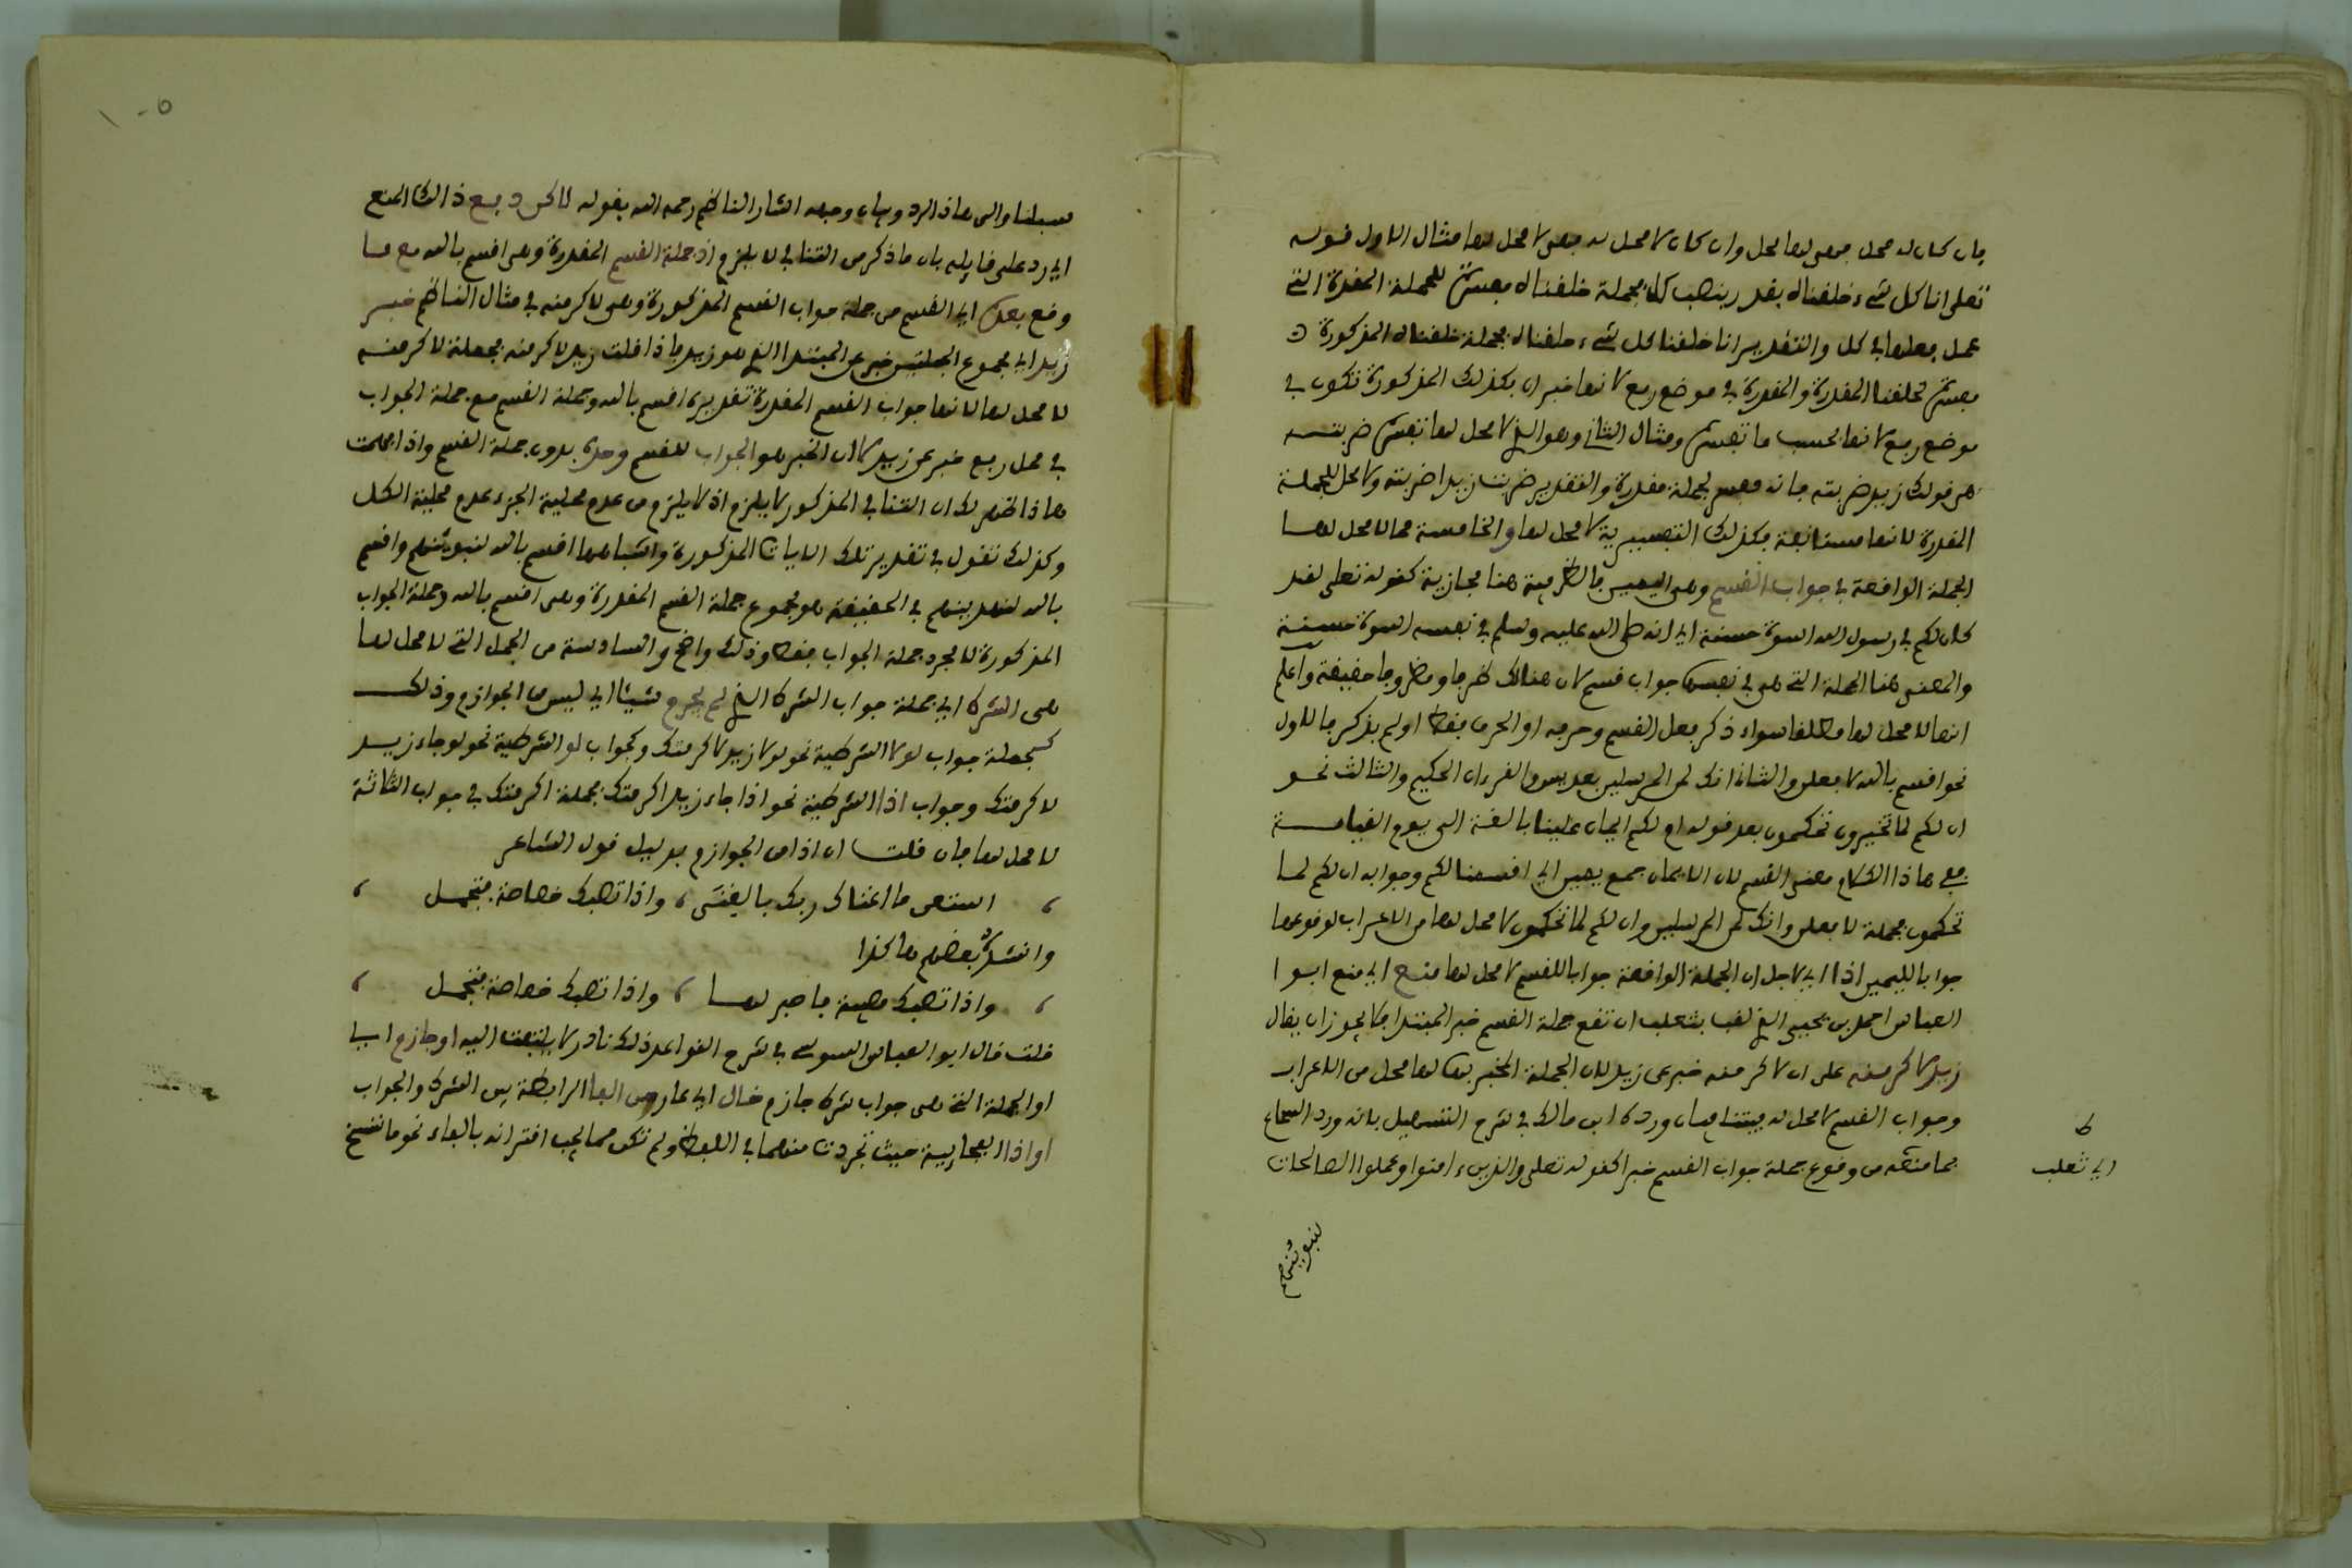 فإن كان له محل فهي لها محل وإن كان لا محل له فهي لا محل لها مثال الاول قوله
تعلى انا كل شيء خلقناه بقدر بنصب كل فجملة خلقناه مفسرة للجملة المقدرة التي
عمل فعلها في كل والتقدير انا خلقنا كل شيء خلقناه فجملة خلقناه المذكورة
مفسرة لخلقنا المقدرة والمقدرة في موضع رفع لانها خبر ان فكذلك المذكورة تكون في
موضع رفع لانها بحسب ما تفسره ومثال الثاني وهو الذي لا محل لها تفسره ضربته
من قولك زيدا ضربته فانه مفسر لجملة مقدرة والتقدير ضربت زيدا ضربته ولا محل للجملة
المقدرة لانها مستانفة فكذلك التفسيرية لا محل لها والخامسة مما لا محل لها
الجملة الواقعة في جواب القسم وهي اليمين فالظرفية هنا مجازية كقوله تعلى لقد
كان لكم في رسول الله اسوة حسنة اي انه صلى الله عليه وسلم في نفسه اسوة حسنة
والمعنى هنا الجملة التي هي في نفسها جواب قسم لا ان هنالك ظرفا ومظروفا حقيقة واعلم
انها لا محل لها مطلقا سواء ذكر فعل القسم وحرفه او الحرف فقط او لم يذكر فالاول
نحو اقسم بالله لافعلن والثاني انك لمن المرسلين بعد يس والقرءان الحكيم والثالث نحو
ان لكم لما تخيرون تحكمون بعد قوله ام لكم ايمان علينا بالغة الى يوم القيامة
ففي هاذا الكلام معنى القسم لان الايمان جمع يمين اي اقسمنا لكم وجوابه ان لكم لما
تحكمون فجملة لافعلن وانك لمن المرسلين وان لكم لما تحكمون لا محل لها من الاعراب لوقوعها
جوابا لليمين اذا اي لاجل ان الجملة الواقعة جوابا للقسم لا محل لها منع اي منع ابو ا
العباس احمد بن يحيى الملقب بثعلب ان تقع جملة القسم خبر المبتدا فلا يجوز ان يقال
زيد لاكرمنه على ان لاكرمنه خبر عن زيد لان الجملة المخبر بها لها محل من الاعراب
وجواب القسم لا محل له فيتنافيان ورده ابن مالك في شرح التسهيل بانه ورد السماع
بما منعه من وقوع جملة جواب القسم خبرا كقوله تعلى والذين ءامنوا وعملوا الصالحات
ط
اي ثعلب
لنبوئنهم
سبلنا والى هاذا الرد وبيان وجهه اشار الناظم رحمه الله بقوله لاكن دفع ذالك المنع
اي رد على قايله بان ما ذكر من التنافي لا يلزم اذ جملة القسم المقدرة وهي اقسم بالله مع ما
وقع بعدها اي القسم من جملة جواب القسم المذكورة وهي لاكرمنه في مثال الناظم خبر
زيد اي مجموع الجملتين خبر عن المبتدا الذي هو زيد فاذا قلت زيد لاكرمنه فجملة لاكرمنه
لا محل لها لانها جواب القسم المقدرة تقديره اقسم بالله وجملة القسم مع جملة الجواب
في محل رفع خبر عن زيد لا ان الخبر هو الجواب للقسم وحده بدون جملة القسم واذا فهمت
هاذا ظهر لك ان التنافي المذكور لا يلزم اذ لا يلزم من عدم محلية الجزء عدم محلية الكل
وكذلك تقول في تقدير تلك الايات المذكورة واشباهها اقسم بالله لنبوئنهم واقسم
بالله لنهدينهم في الحقيقة هو مجموع جملة القسم المقدرة وهي اقسم بالله وجملة الجواب
المذكورة لا مجرد جملة الجواب فقط وذلك واضح والسادسة من الجمل التي لا محل لها
هي الشرط اي جملة جواب الشرط الذي لم يجزم شيئا اي ليس من الجوازم وذلك
كجملة جواب لولا الشرطية نحو لولا زيد لاكرمتك وكجواب لو الشرطية نحو لو جاء زيد
لاكرمتك وجواب اذا الشرطية نحو اذا جاء زيد اكرمتك فجملة اكرمتك في جواب الثلاثة
لا محل لها فان قلت ان اذا من الجوازم بدليل قول الشاعر
استغن ما اغناك ربك بالغنى ، واذا تصبك خصاصة فتجمل
وانشده بعضهم هاكذا
واذا تصبك مصيبة فاصبر لها ، واذا تصبك خصاصة فتجمل
قلت قال ابو العباس السوسي في شرح القواعد ذلك نادر لا يلتفت اليه او جازم اي
او الجملة التي هي جواب شرط جازم خال اي عار من الفا الرابطة بين الشرط والجواب
او اذا الفجاييية حيث تجردت منهما في اللفظ ولم تكن مما يجب اقترانه بالفاء نحو ما ننسخ